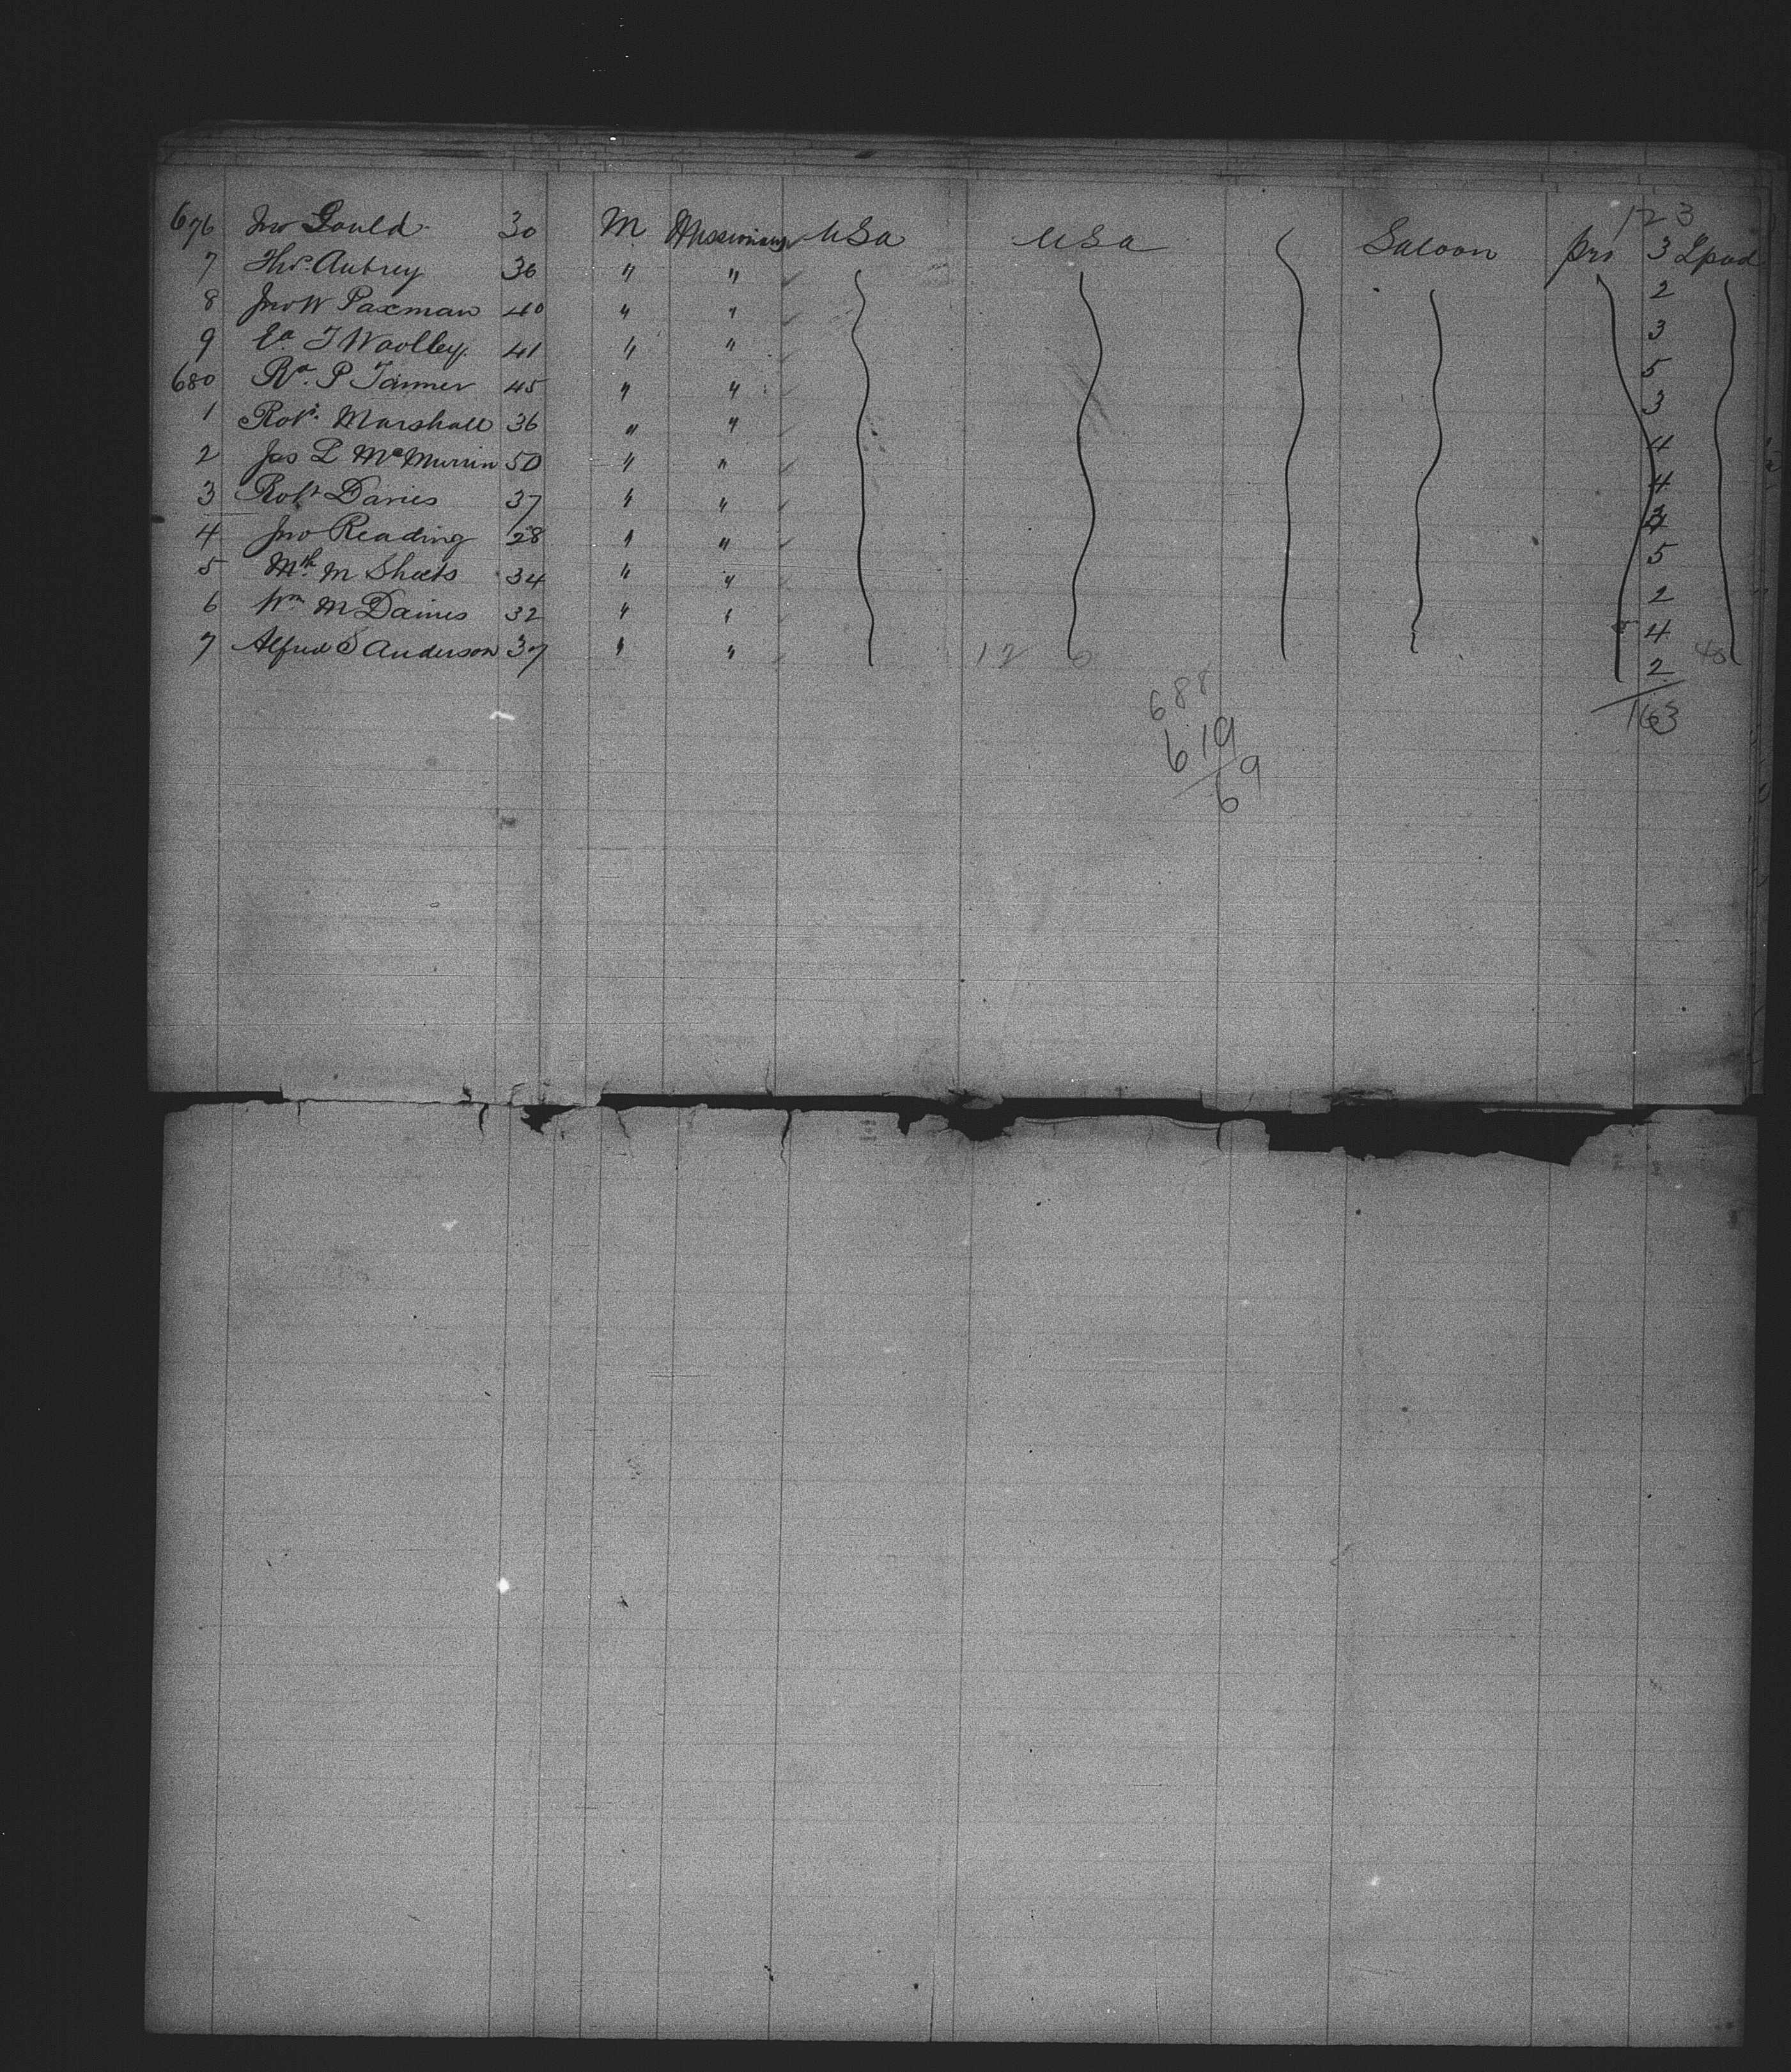 123
676 Jno Gould 30 M Missionary USa USa Saloon prs 3 Lpool
7 Thos. Aubrey 36 " " 2
8 Jno W Paxman 40 " " 3
9 Ea. T Woolley 41 " " 5
680 Ra. P Tanner 45 " " 3
1 Robt. Marshall 36 " " 4
2 Jas L McMurrin 50 " " 4
3 Robt Davies 37 " "
4 Jno Reading 28 " " 5
5 Mth. M Sheets 34 " " 2
6 Wm M Daines 32 " " 4
7 Alfred S Anderson 37 " " 12 0 2
163
688
619
69